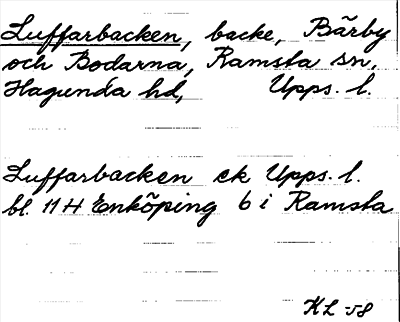 Luffarbacken, backe, Bärby
och Bodarna, Ramsta sn,
Hagunda hd, Upps. l.
Luffarbacken ek Upps. l.
bl. 11 H Enköping 6 i Ramsta
KL -58